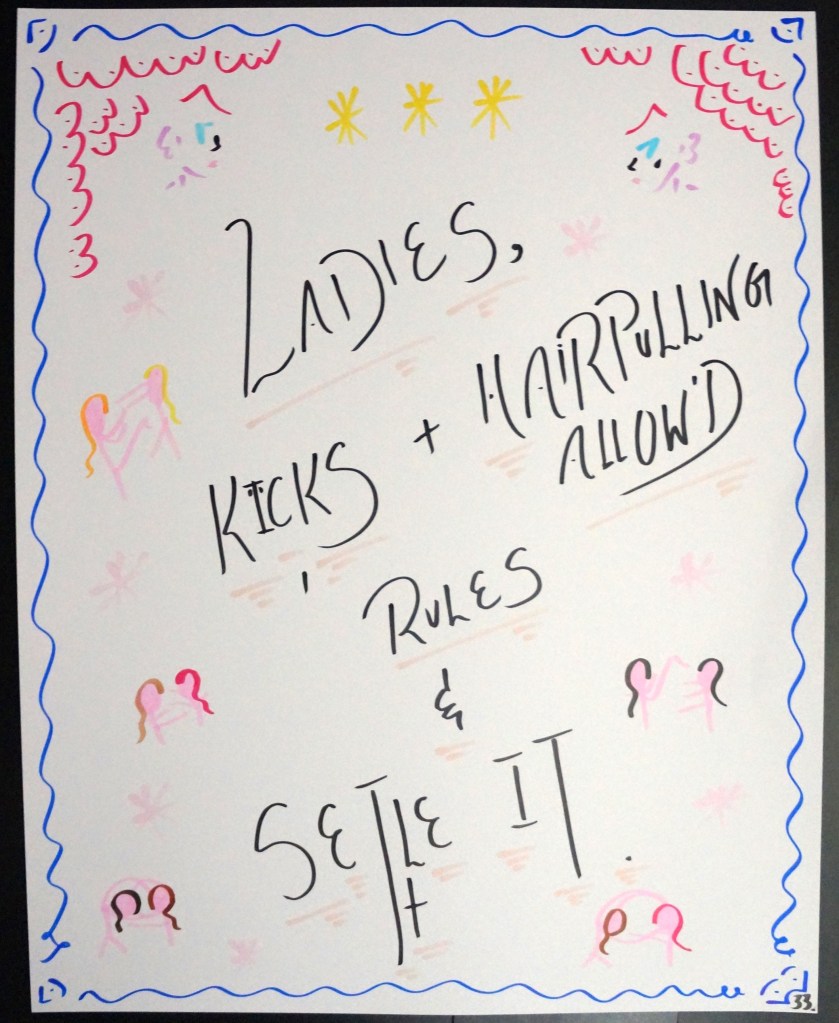 LADIES,
KICKS + HAIRPULLING
ALLOW'D
RULES
&
SETTLE IT.
33.